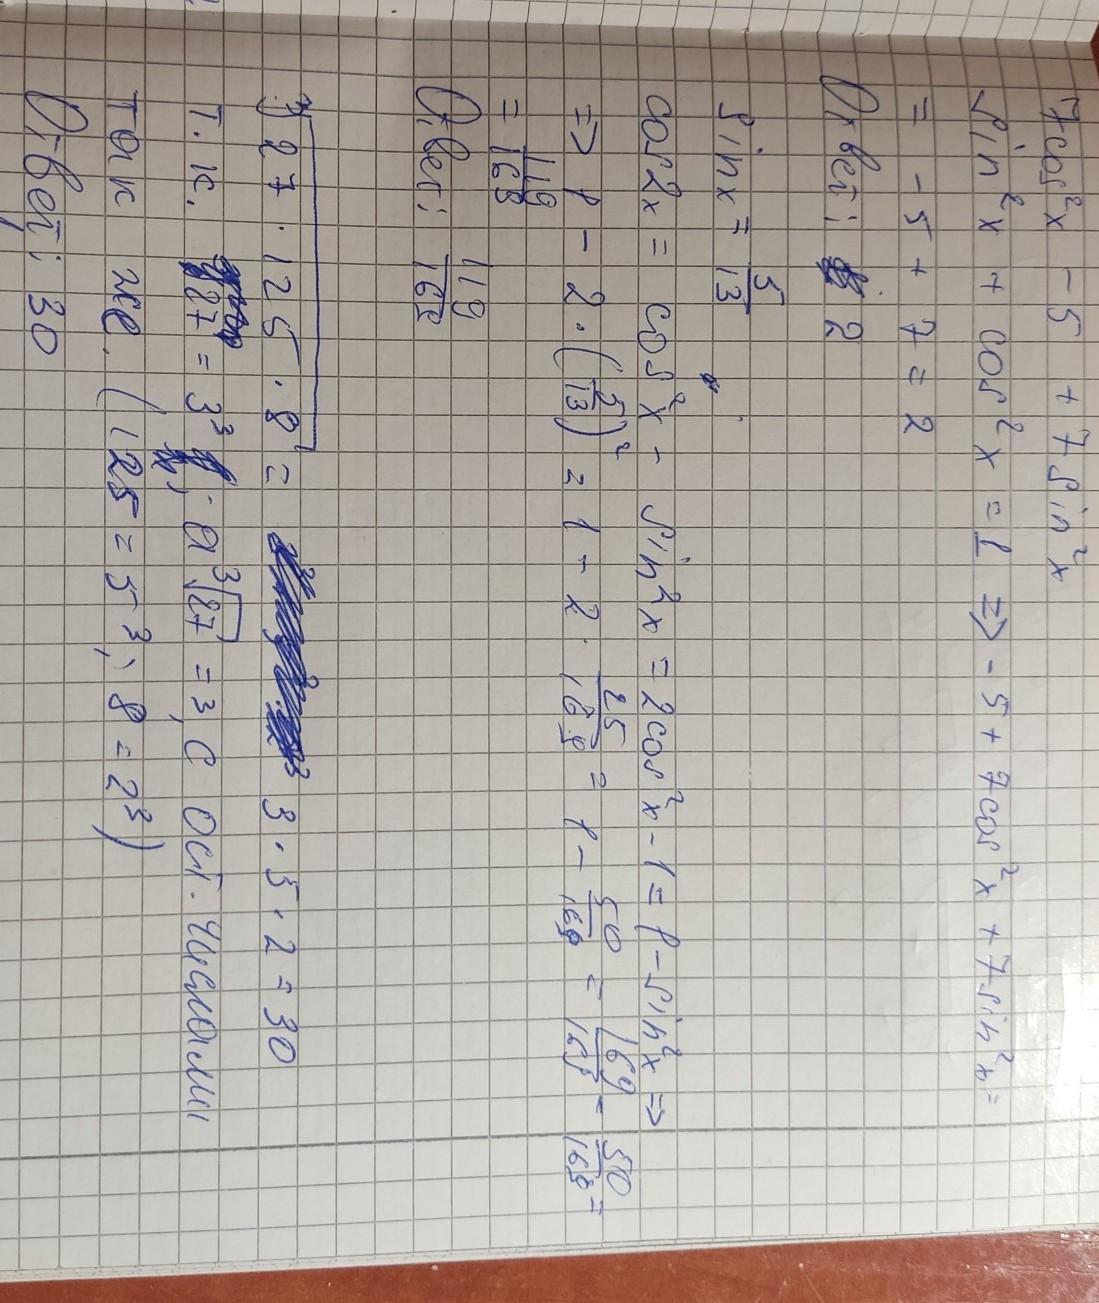 7cos²x - 5 + 7sin²x
sin²x + cos²x = 1 => - 5 + 7cos²x + 7sin²x =
= - 5 + 7 = 2
Ответ: 2
sinx = 5/13
cos2x = cos²x - sin²x = 2cos²x - 1 = 1 - sin²x =>
=> 1 - 2 · (5/13)² = 1 - 2 · 25/169 = 1 - 50/169 = 169/169 - 50/169 =
= 119/169
Ответ: 119/169
³√27 · 125 · 8 = 3 · 5 · 2 = 30
Т.к. 27 = 3³, а ³√27 = 3, с ост. числами
так же. (125 = 5³, 8 = 2³)
Ответ: 30